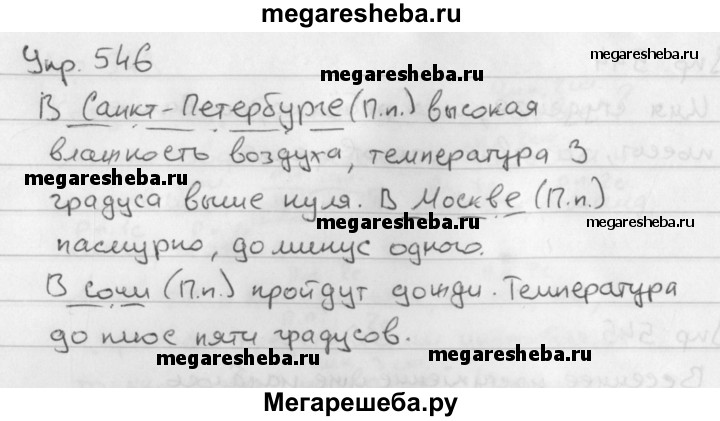 megaresheba.ru
Упр. 546
megaresheba.ru
megaresheba.ru
В Санкт-Петербурге (П.п.) высокая
влажность воздуха, температура 3
megaresheba.ru
градуса выше нуля. В Москве (П.п.)
megaresheba.ru
megaresheba.ru
пасмурно, до минус одного.
В сочи (П.п.) пройдут дожди. Температура
до плюс пяти градусов.
megaresheba.ru
megaresheba.ru
Мегарешеба.ру